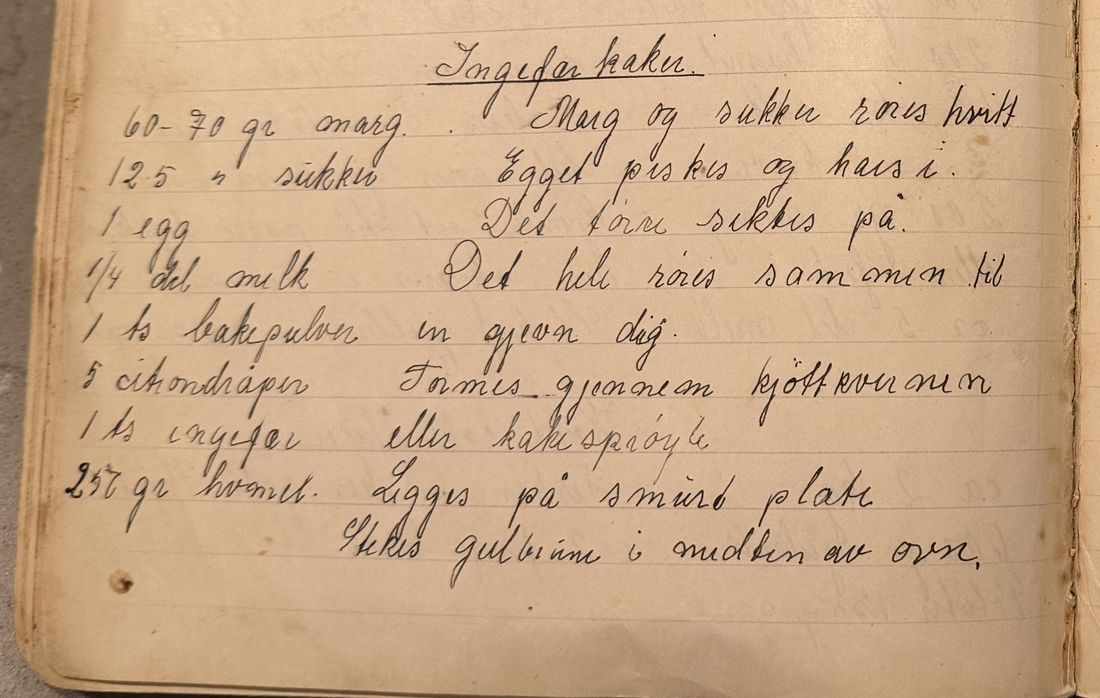 Ingefær kaker.
60-70 gr marg. Marg og sukker røres hvitt
125 " sukker Egget piskes og haes i.
1 egg Det tørre siktes på.
1/4 del melk Det hele røres sammen til
1 ts bakepulver en gjevn dig.
5 citrondråper Formes gjennem kjöttkvernen
1 ts ingefær eller kakesprøyte
250 gr hvmel. Legges på smurt plate
Stekes gulbrune i midten av ovn.